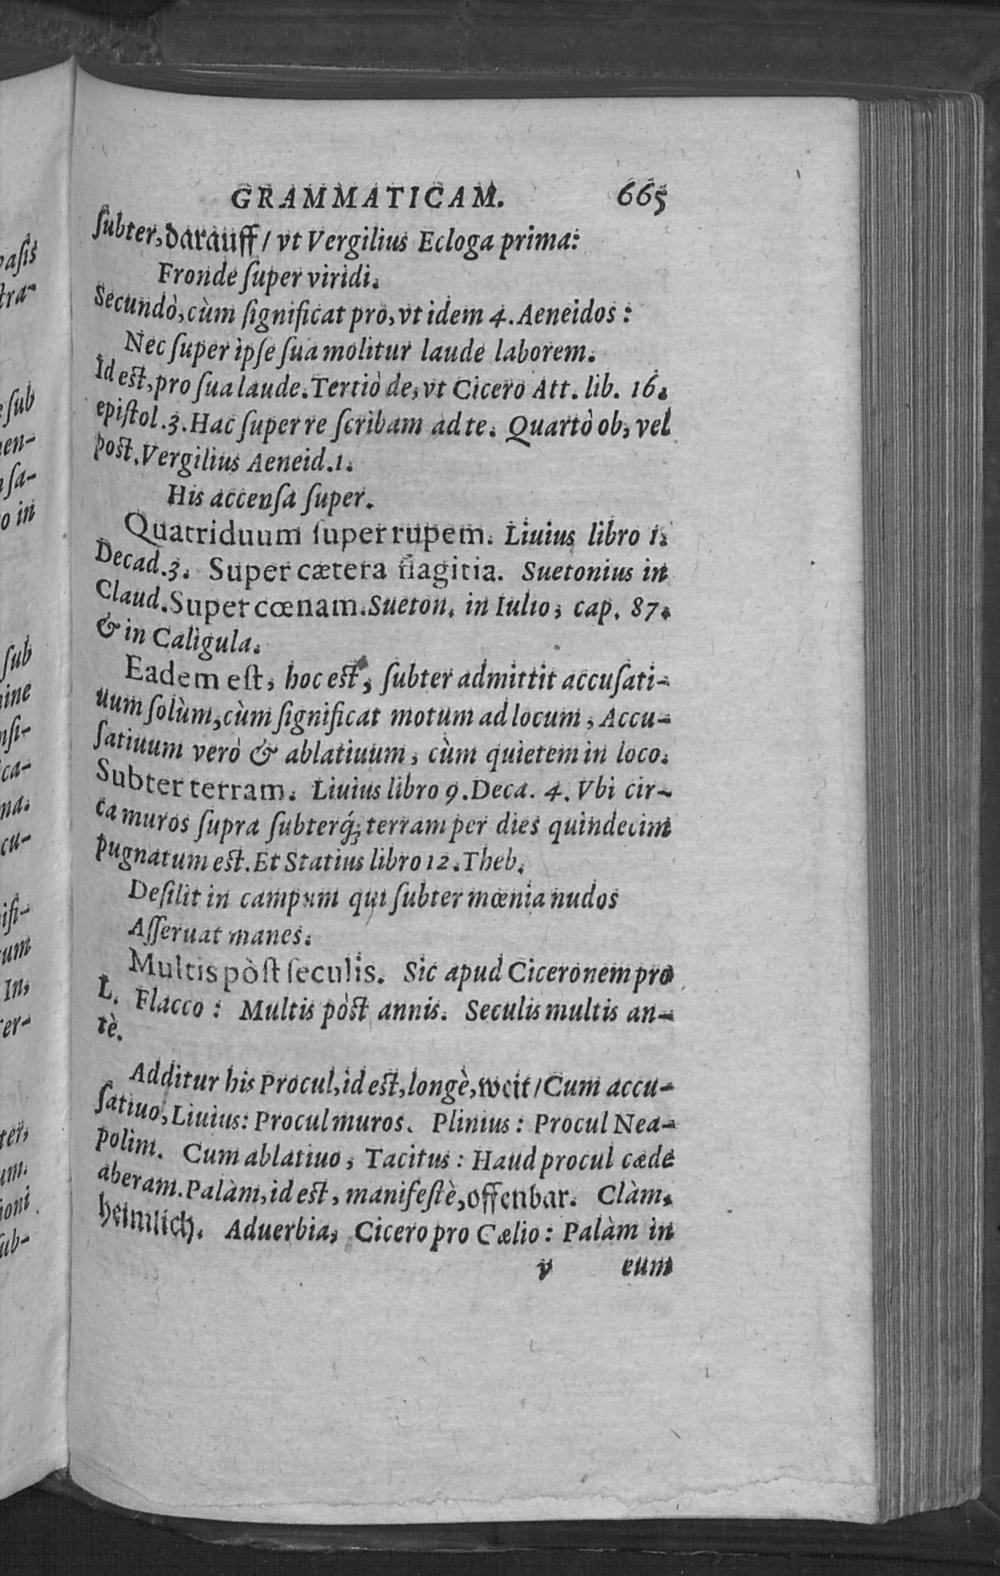 GRAMMATICAM. 665
ſubter, darauff / vt Vergilius Ecloga prima:
Fronde ſuper viridi.
Secundò, cùm ſignificat pro, vt idem 4. Aeneidos:
Nec ſuper ipſe ſua molitur laude laborem.
Id est, pro ſua laude. Tertiò de, vt Cicero Att. lib. 16.
epiſtol. 3. Hac ſuper re ſcribam ad te. Quartò ob, vel
post. Vergilius Aeneid. 1.
His accenſa ſuper.
Quatriduum ſuper rupem. Liuius libro 1.
Decad. 3. Super cætera flagitia. Suetonius in
Claud. Super cœnam. Sueton. in Iulio, cap. 87.
& in Caligula.
Eadem eſt, hoc est, ſubter admittit accuſati-
uum ſolùm, cùm ſignificat motum ad locum, Accu-
ſatiuum verò & ablatiuum, cùm quietem in loco.
Subter terram. Liuius libro 9. Deca. 4. Vbi cir-
ca muros ſupra ſubterq́; terram per dies quindecim
pugnatum est. Et Statius libro 12. Theb.
Deſilit in campum qui ſubter mœnia nudos
Aſſeruat manes.
Multis pòſt ſeculis. Sic apud Ciceronem pro
L. Flacco: Multis pòst annis. Seculis multis an-
tè.
Additur his Procul, id est, longè, weit / Cum accu-
ſatiuo, Liuius: Procul muros. Plinius: Procul Nea-
polim. Cum ablatiuo, Tacitus: Haud procul cæde
aberam. Palàm, id est, manifeſtè, offenbar. Clàm,
heimlich. Aduerbia, Cicero pro Cælio: Palàm in
v eum
vaſis
tra-
ſub
en-
ſa-
o in
ſub
ine
nſi-
ca-
na.
cu-
iſi-
um
In,
er-
ter,
um.
ioni
ſub-